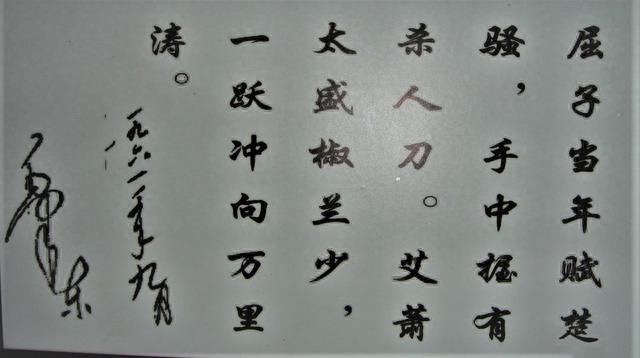 屈子当年赋楚
骚，手中握有
杀人刀。艾萧
太盛椒兰少，
一跃冲向万里
涛。
一九六一年九月
毛泽东